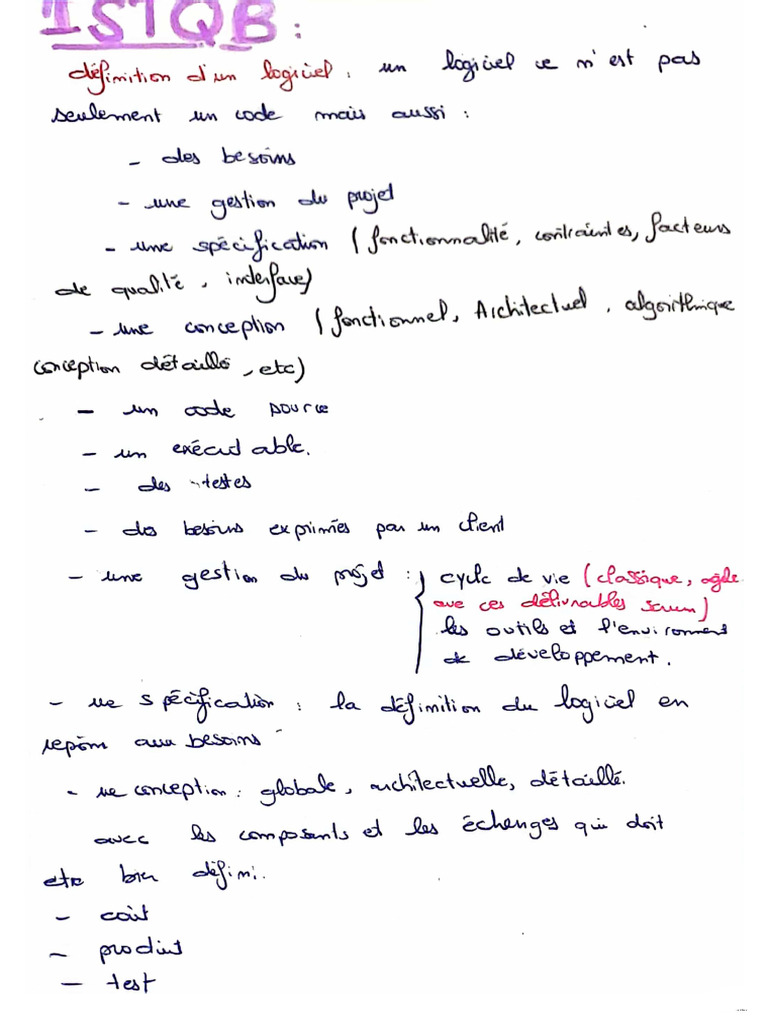 ISTQB :
définition d'un logiciel : un logiciel ce n'est pas
seulement un code mais aussi :
- des besoins
- une gestion du projet
- une spécification (fonctionnalité, contraintes, facteurs
de qualité, interface)
- une conception (fonctionnel, Architectuel, algorithmique
conception détaillé, etc)
- un code source
- un exécutable.
- des testes
- des besoins exprimées par un client
- une gestion du projet : cycle de vie (classique, agile
ave ces délivrables scrum)
les outils et l'environment
de développement.
- une spécification : la définition du logiciel en
repom aux besoins
- une conception : globale, architectuelle, détaillé.
avec les composants et les échenges qui doit
etre bien défini.
- coût
- produit
- test